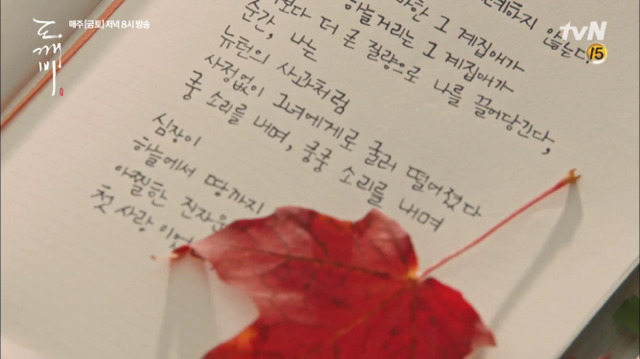 매주[금토]저녁 8시 방송
도깨비
tvN
15
그 계집애가
않는다,
하늘거리는 그 계집애가
보다 더 큰 질량으로 나를 끌어당긴다,
순간, 나는
뉴턴의 사과처럼
사정없이 그녀에게로 굴러 떨어졌다
쿵 소리를 내며, 쿵쿵 소리를 내며
심장이
하늘에서 땅까지
아찔한 진자운
첫사랑이었